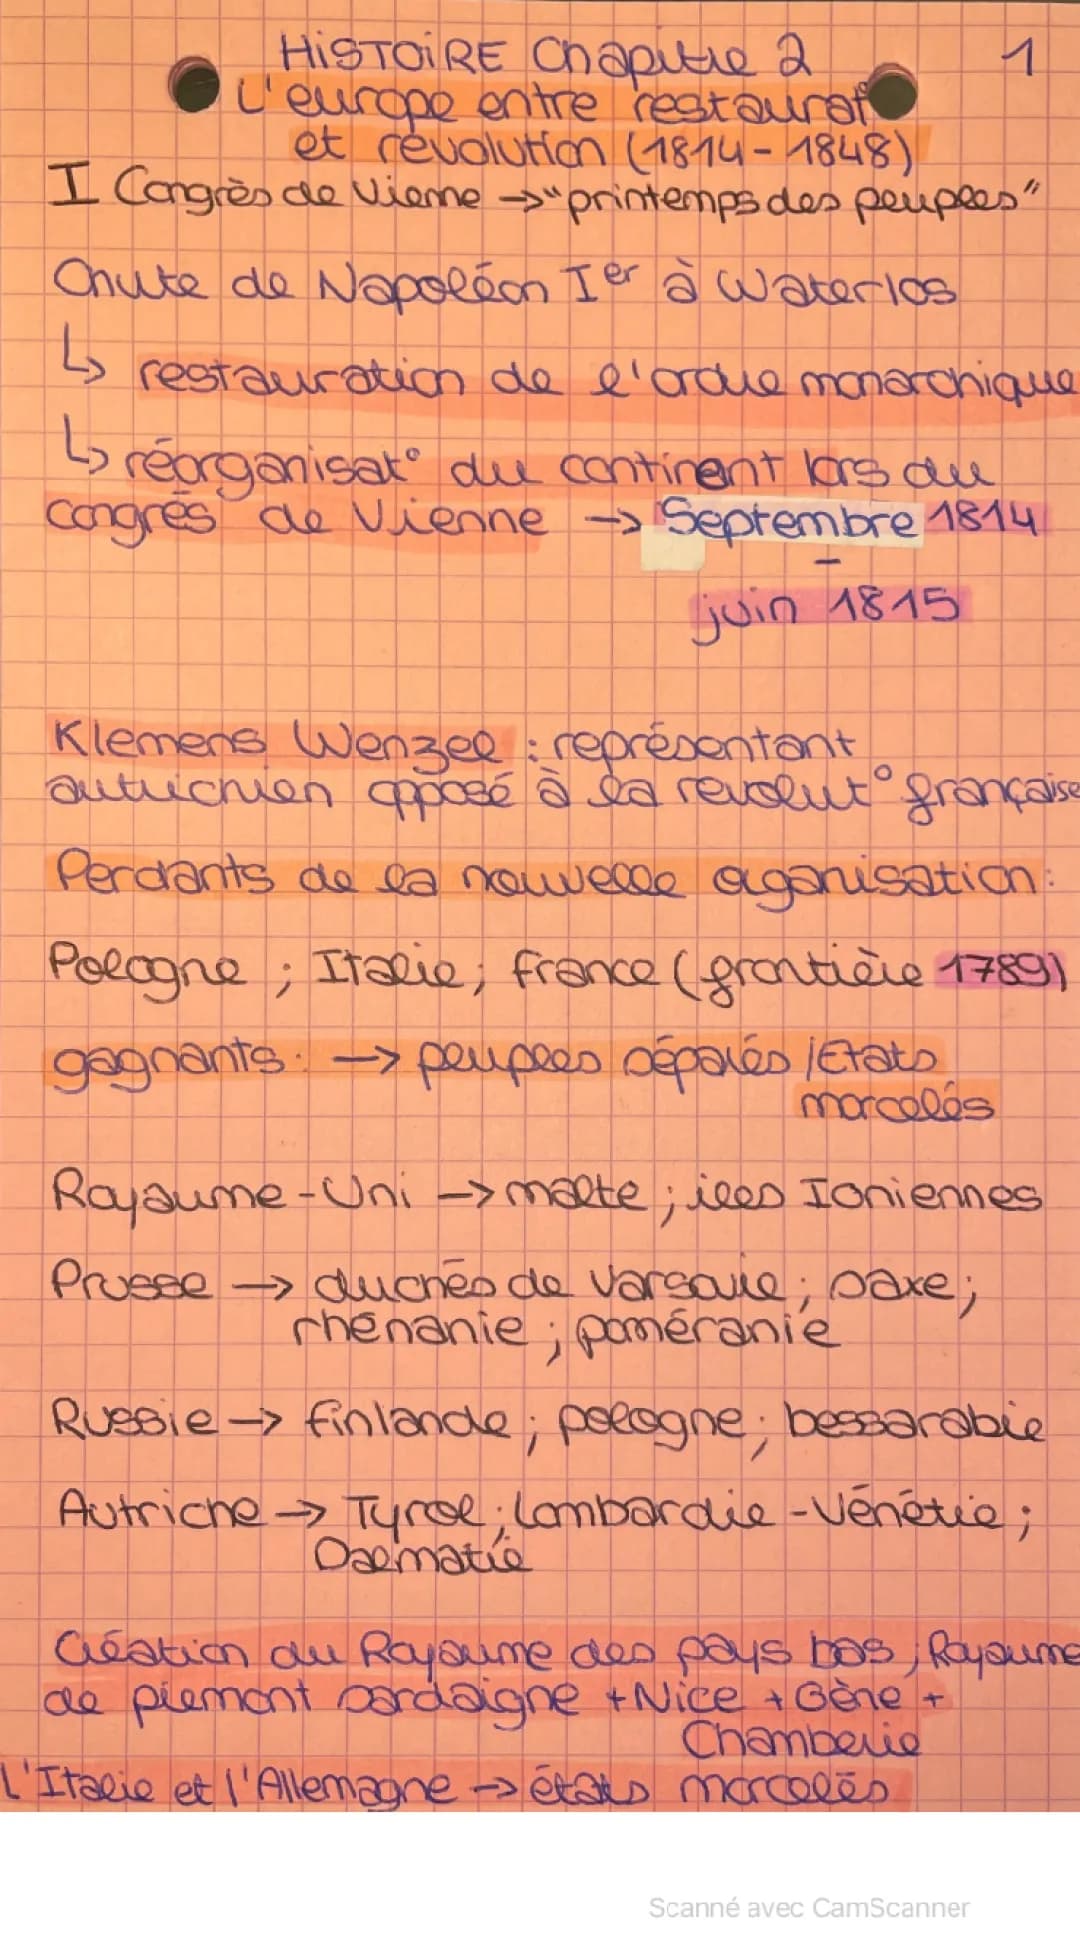 HiSTOiRE Chapitre 2
1
L'europe entre restaurat°
et révolution (1814-1848)
I Congrès de Vienne → "printemps des peuples"
Chute de Napoléon Ier à Waterloo
↳ restauration de l'ordre monarchique
↳ réorganisat° du continent lors du
congrès de Vienne → Septembre 1814
-
juin 1815
Klemens Wenzel : représentant
autrichien opposé à la revolut° française
Perdants de la nouvelle organisation :
Pologne ; Italie ; France (frontière 1789)
gagnants : → peuples séparés / Etats
morcelés
Royaume-Uni → malte ; iles Ioniennes
Prusse → duchés de Varsovie ; saxe ;
rhénanie ; poméranie
Russie → finlande ; pologne ; bessarabie
Autriche → Tyrol ; Lombardie-Vénétie ;
Dalmatie
Création du Royaume des pays bas ; Royaume
de piemont sardaigne + Nice + Gène +
Chamberie
L'Italie et l'Allemagne → états morcelés
Scanné avec CamScanner